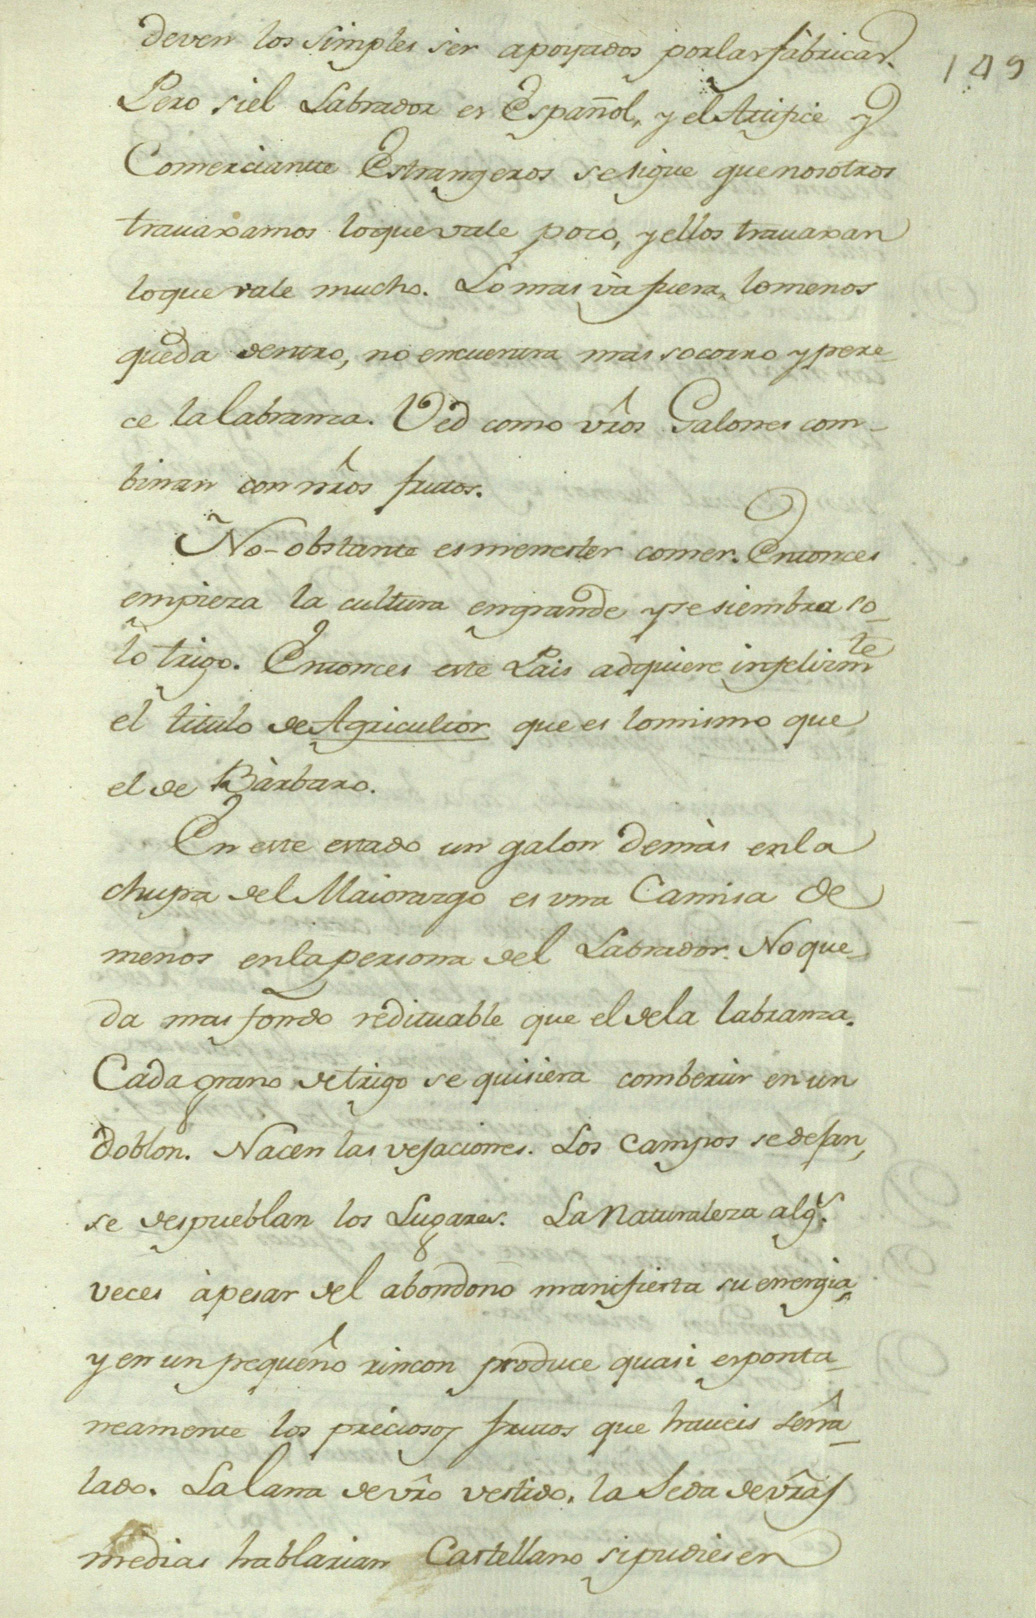 deven los simples ser apoyados por las fàbricas.
149
Pero si el Labrador es Español, y el Artifice y
Comerciante Estrangeros se sigue que nosotros
travaxamos lo que vale poco, y ellos travaxan
lo que vale mucho. Lo mas và fuera, lo menos
queda dentro, no encuentra mas socorro y pere-
ce la labranza. Ved como vr̃os Galones com-
binan con nr̃os frutos.
No-obstante es menester comer. Entonces
empieza la cultura en grande y se siembra so-
lo trigo. Entonces este Pais adquiere infelizmte
el titulo de Agricultor que es lo mismo que
el de Bàrbaro.
En este estado un galon demàs en la
chupa del Maiorazgo es una Camisa de
menos en la persona del Labrador. No que-
da mas fondo redituable que el de la labranza.
Cada grano de trigo se quisiera combertir en un
doblon. Nacen las vejaciones. Los campos se dejan,
se despueblan los Lugares. La Naturaleza algs.
veces àpesar del abondono manifiesta su energia,
y en un pequeño rincon produce quasi esponta-
neamente los preciosos frutos que haveis seña-
lado. La lana de vr̃o vestido, la seda de vr̃as
medias hablarian Castellano si pudiesen